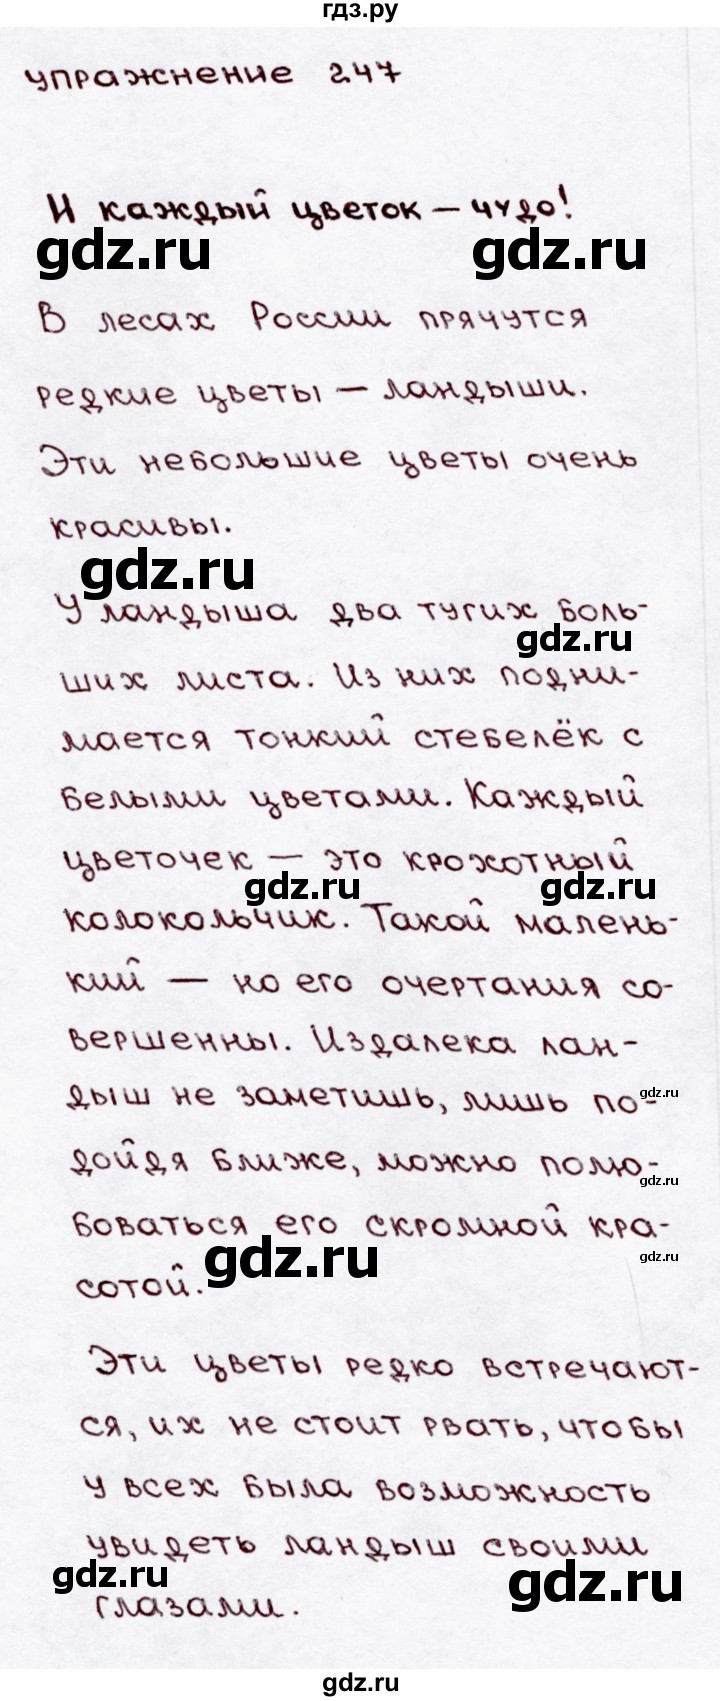 гдз.ру
упражнение 247
И каждый цветок – чудо!
gdz.ru gdz.ru
В лесах России прячутся
редкие цветы – ландыши.
Эти небольшие цветы очень
красивы.
gdz.ru
У ландыша два тугих боль-
gdz.ru
ших листа. Из них подни-
мается тонкий стебелёк с
белыми цветами. Каждый
цветочек – это крохотный
gdz.ru gdz.ru
колокольчик. Такой малень-
кий – но его очертания со-
вершенны. Издалека лан-
gdz.ru
дыш не заметишь, лишь по-
дойдя ближе, можно полю-
gdz.ru
боваться его скромной кра-
gdz.ru gdz.ru
сотой.
Эти цветы редко встречают-
ся, их не стоит рвать, чтобы
у всех была возможность
увидеть ландыш своими
gdz.ru gdz.ru
глазами.
gdz.ru